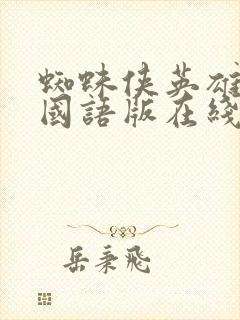 蜘蛛俠英雄
國語版在綫
岳秉飛